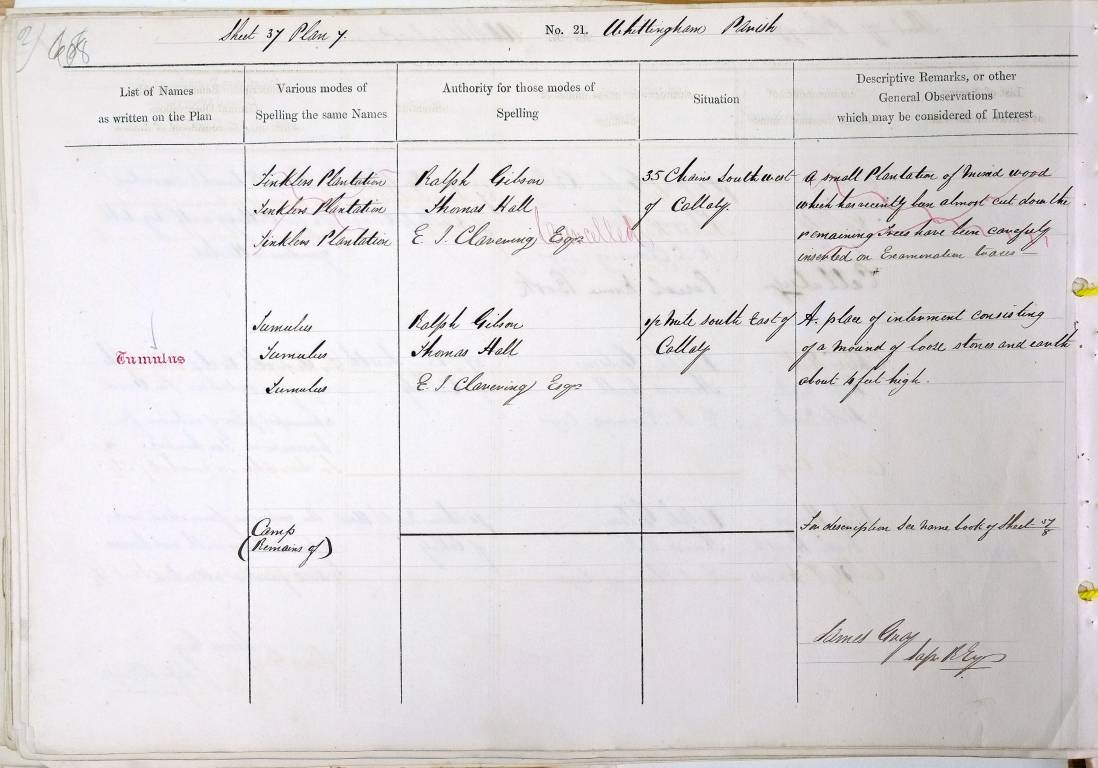 Sheet 37 Plan 7.
No. 21. Whittingham Parish
List of Names
as written on the Plan
Various modes of
Spelling the same Names
Authority for those modes of
Spelling
Situation
Descriptive Remarks, or other
General Observations
which may be considered of Interest
Tinklers Plantation
Tinklers Plantation
Tinklers Plantation
Ralph Gibson
Thomas Hall
E. J. Clavering Esqr
35 Chains South west
of Callaly.
A small Plantation of mixed wood
which has recently been almost cut down the
remaining Trees have been carefully
inserted on Examination traces —
Tumulus
Tumulus
Tumulus
Tumulus
Ralph Gibson
Thomas Hall
E. J. Clavering Esqr
1/2 Mile South East of
Callaly
A place of interment consisting
of a mound of loose stones and earth
about 4 feet high.
Camp
(Remains of)
For description see name book of Sheet 37/8
James Gray
Sapr R.E.